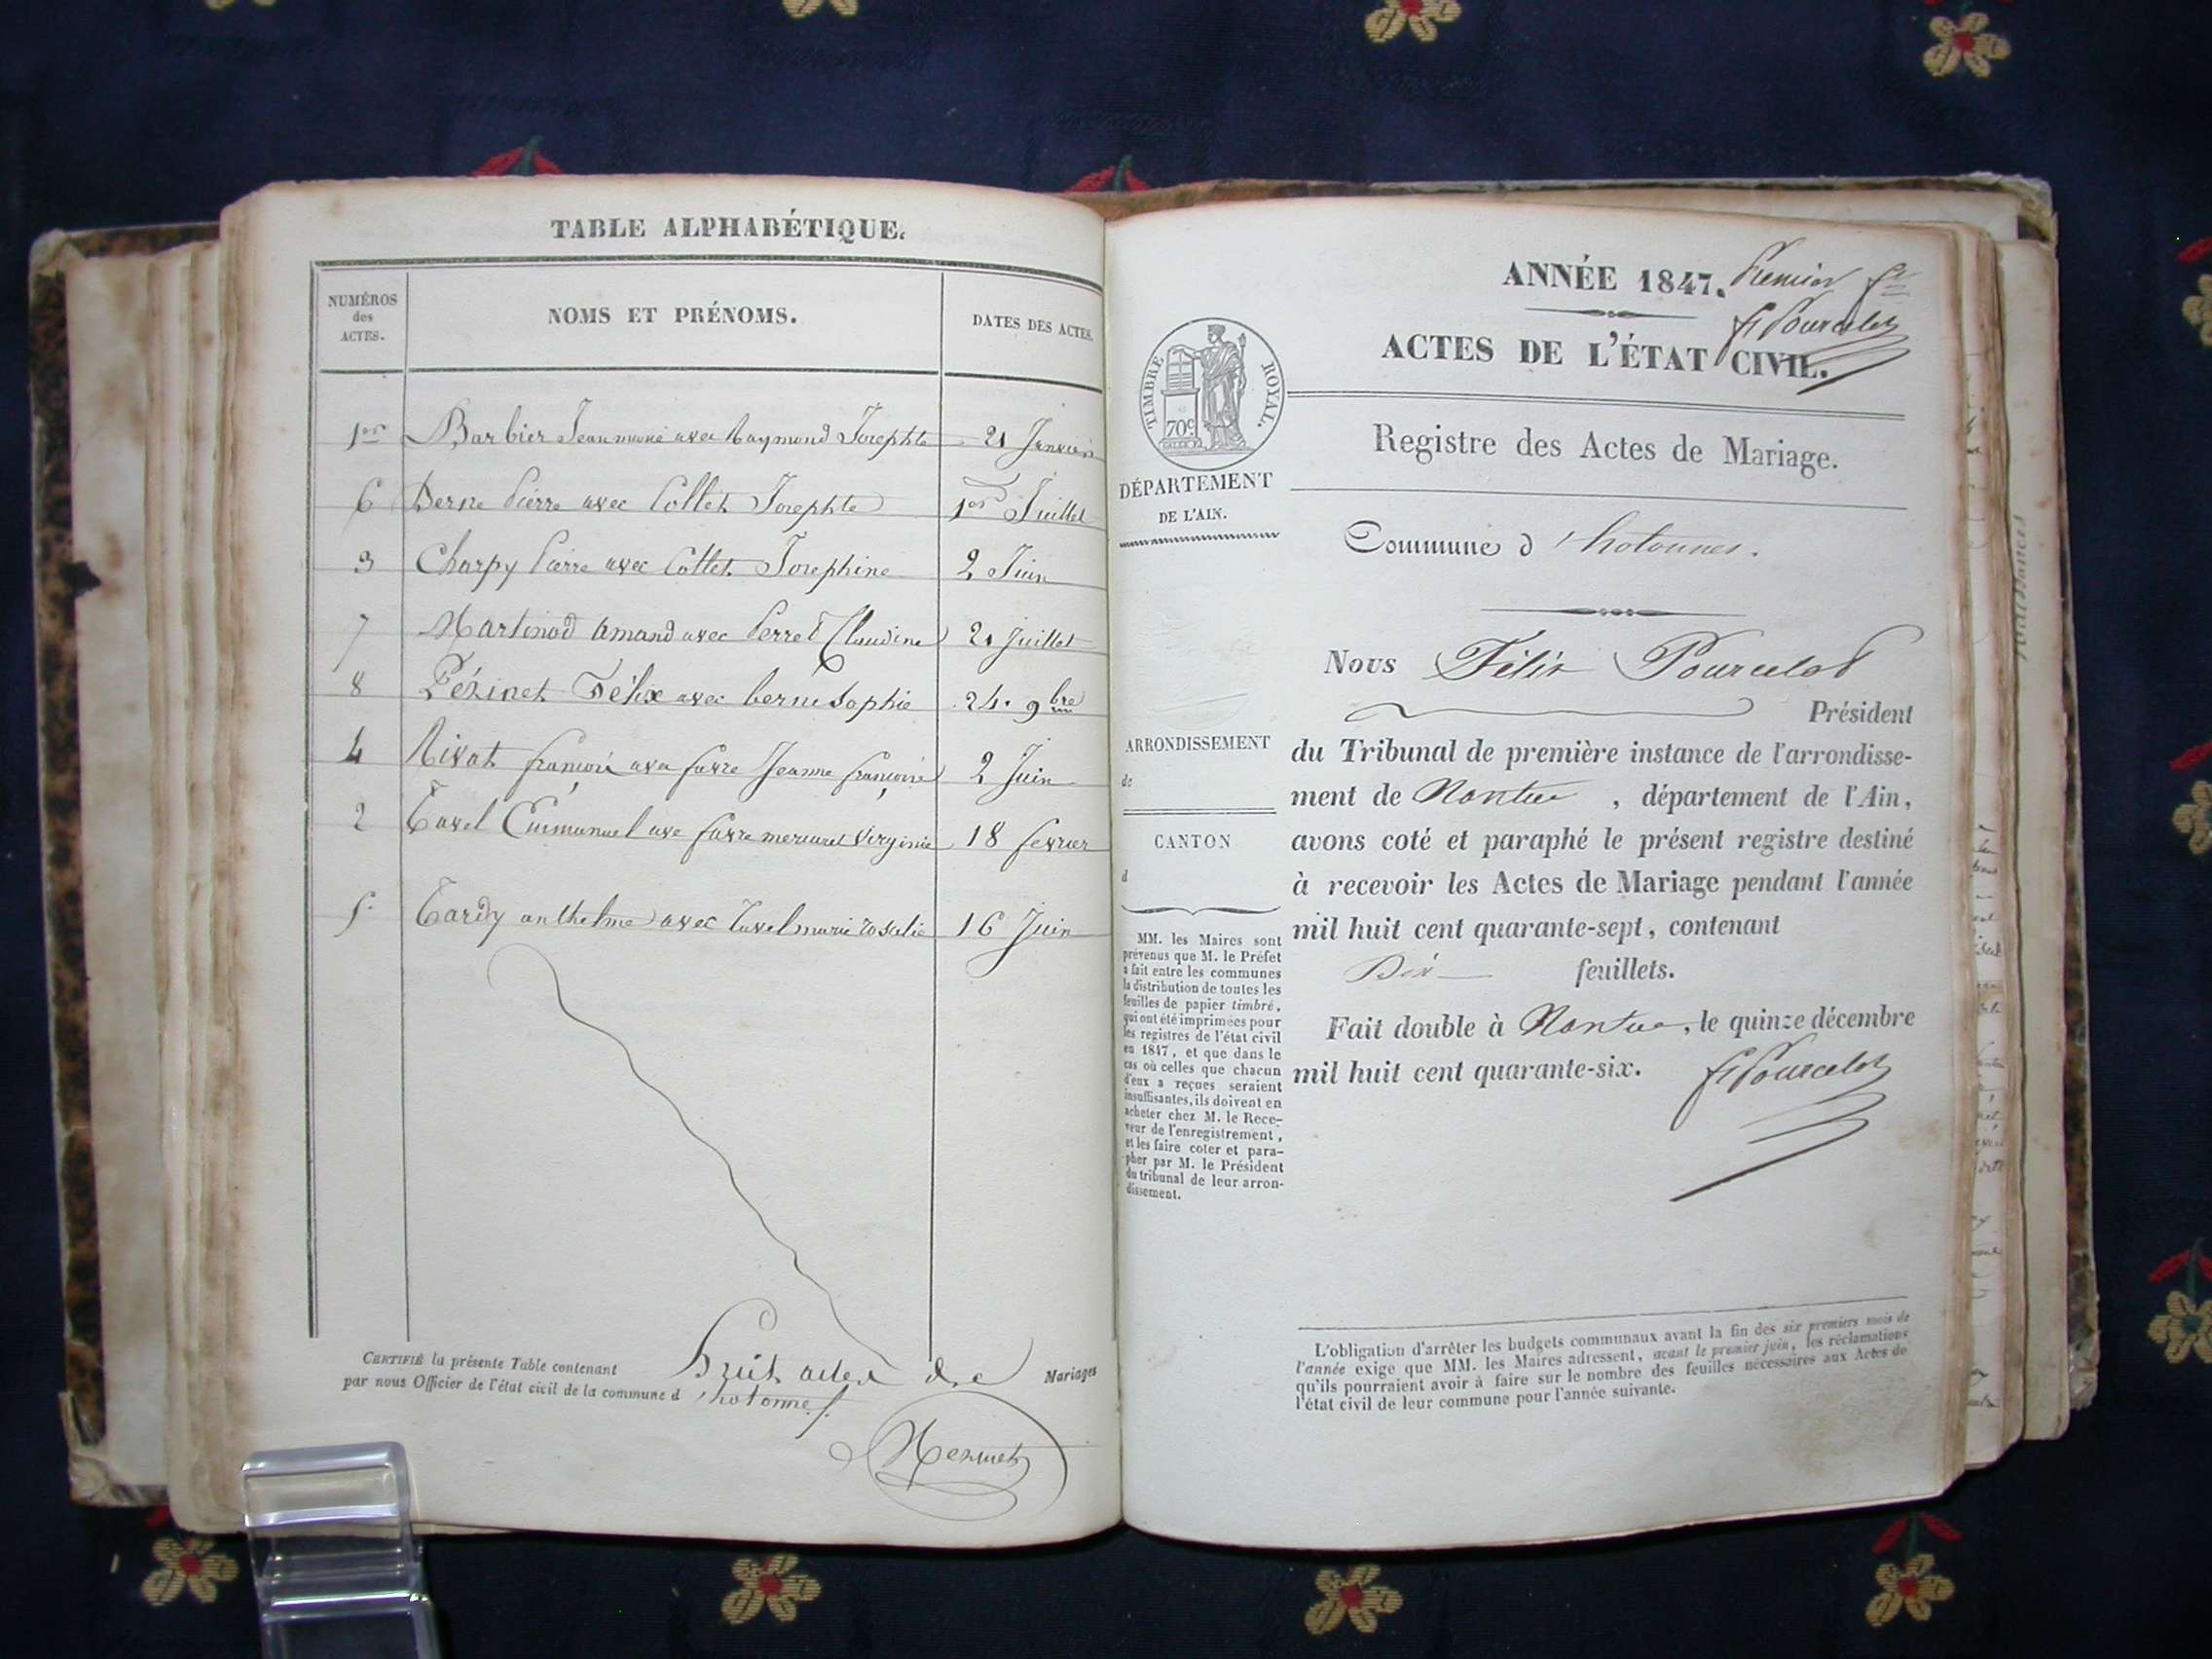 TABLE ALPHABÉTIQUE.
NUMÉROS
des
ACTES.
NOMS ET PRÉNOMS.
DATES DES ACTES.
1er Barbier Jean marie avec Raymond Josephte 21 Janvier
6 Berne Pierre avec Collet Josephte 1er Juillet
3 Charpy Pierre avec Collet Josephine 2 Juin
7 Martinod Amand avec Perret Claudine 21 Juillet
8 Pézinet Félix avec berne Sophie 24. 9bre
4 Rivat françois avec favre Jeanne françoise 2 Juin
2 Tavel Emmanuel ave favre virginie 18 fevrier
5. Tardy anthelme avec Tavel marie rosalie 16 Juin
CERTIFIÉ la présente Table contenant huit actes de Mariages
par nous Officier de l'état civil de la commune d'hotonnes.
ANNÉE 1847. Premier ft
F Pourcelot
ACTES DE L'ÉTAT CIVIL.
TIMBRE ROYAL.
70c.
Registre des Actes de Mariage.
DÉPARTEMENT
DE L'AIN.
Commune d'hotonnes.
Nous Félix Pourcelot
Président
ARRONDISSEMENT
de
CANTON
d
du Tribunal de première instance de l'arrondisse-
ment de Nantua, département de l'Ain,
avons coté et paraphé le présent registre destiné
à recevoir les Actes de Mariage pendant l'année
mil huit cent quarante-sept, contenant
Dix feuillets.
Fait double à Nantua, le quinze décembre
mil huit cent quarante-six.
F Pourcelot
MM. les Maires sont
prévenus que M. le Préfet
a fait entre les communes
la distribution de toutes les
feuilles de papier timbré,
qui ont été imprimées pour
les registres de l'état civil
en 1847, et que dans le
cas où celles que chacun
d'eux a reçues seraient
insuffisantes, ils doivent en
acheter chez M. le Rece-
veur de l'enregistrement,
et les faire coter et para-
pher par M. le Président
du tribunal de leur arron-
dissement.
L'obligation d'arrêter les budgets communaux avant la fin des six premiers mois de
l'année exige que MM. les Maires adressent, avant le premier juin, les réclamations
qu'ils pourraient avoir à faire sur le nombre des feuilles nécessaires aux Actes de
l'état civil de leur commune pour l'année suivante.
Naissances